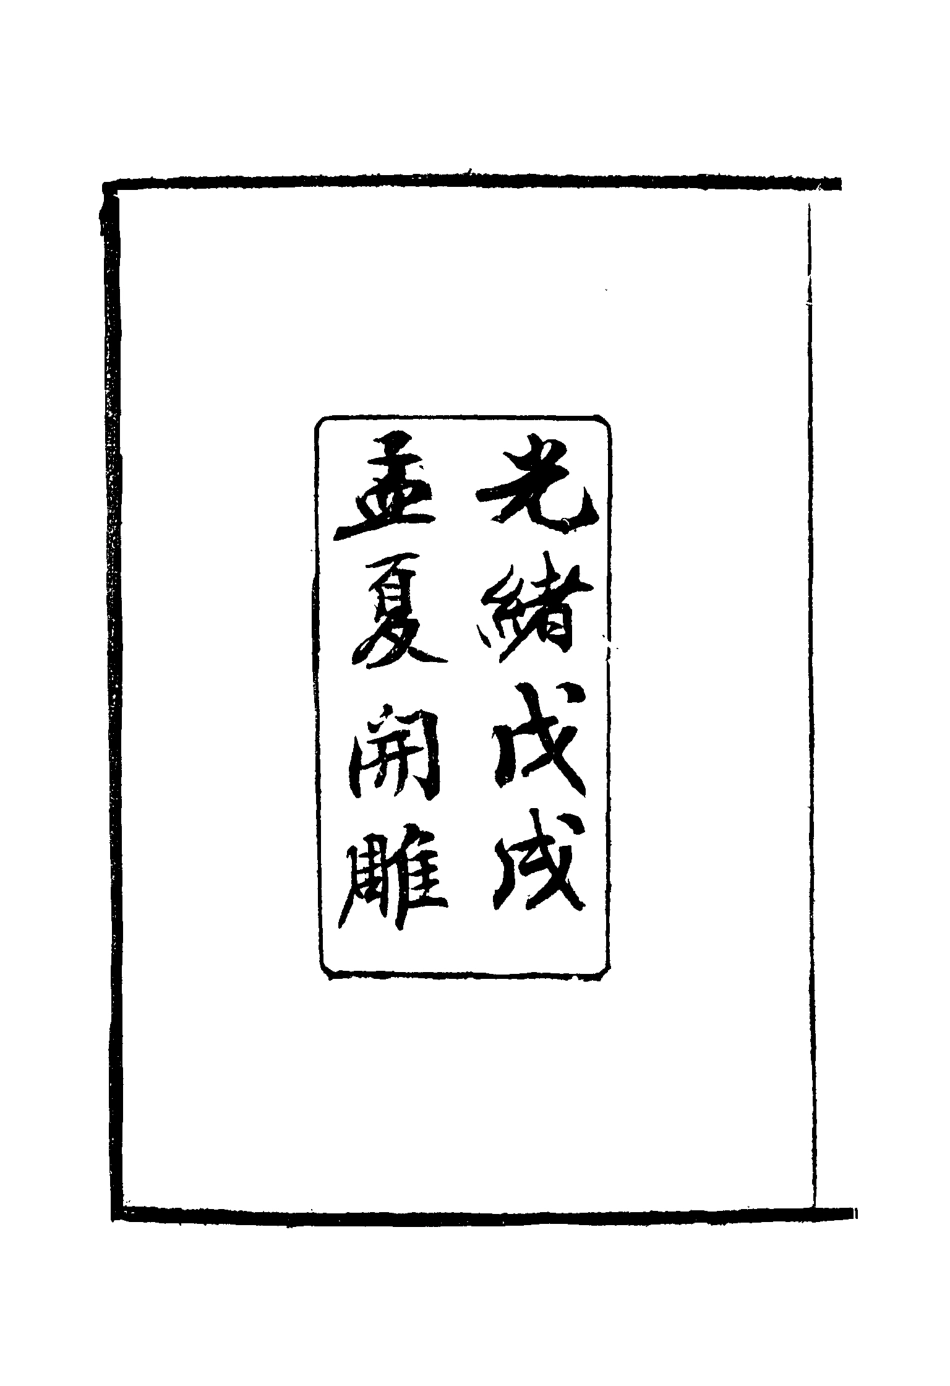 光緒戊戌
孟夏開雕